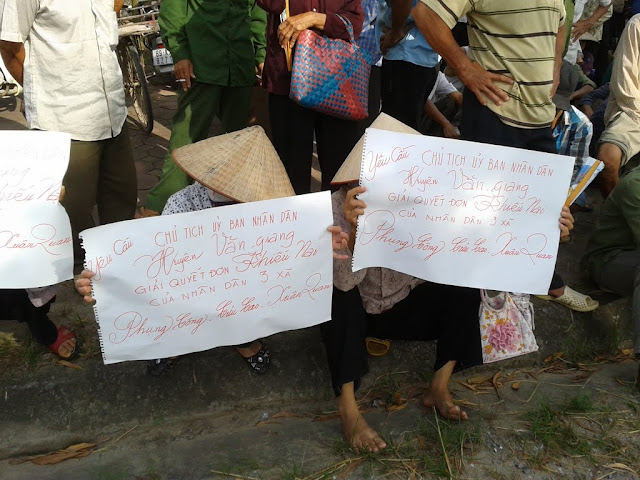 Xuân Quan
Yêu Cầu CHỦ TỊCH ỦY BAN NHÂN DÂN
Huyện Văn giang
GIẢI QUYẾT ĐƠN Khiếu Nại
CỦA NHÂN DÂN 3 XÃ
Phụng Công, Cửu Cao, Xuân Quan
Yêu Cầu CHỦ TỊCH ỦY BAN NHÂN DÂN
Huyện Văn giang
GIẢI QUYẾT ĐƠN Khiếu Nại
CỦA NHÂN DÂN 3 XÃ
Phụng Công, Cửu Cao, Xuân Quan